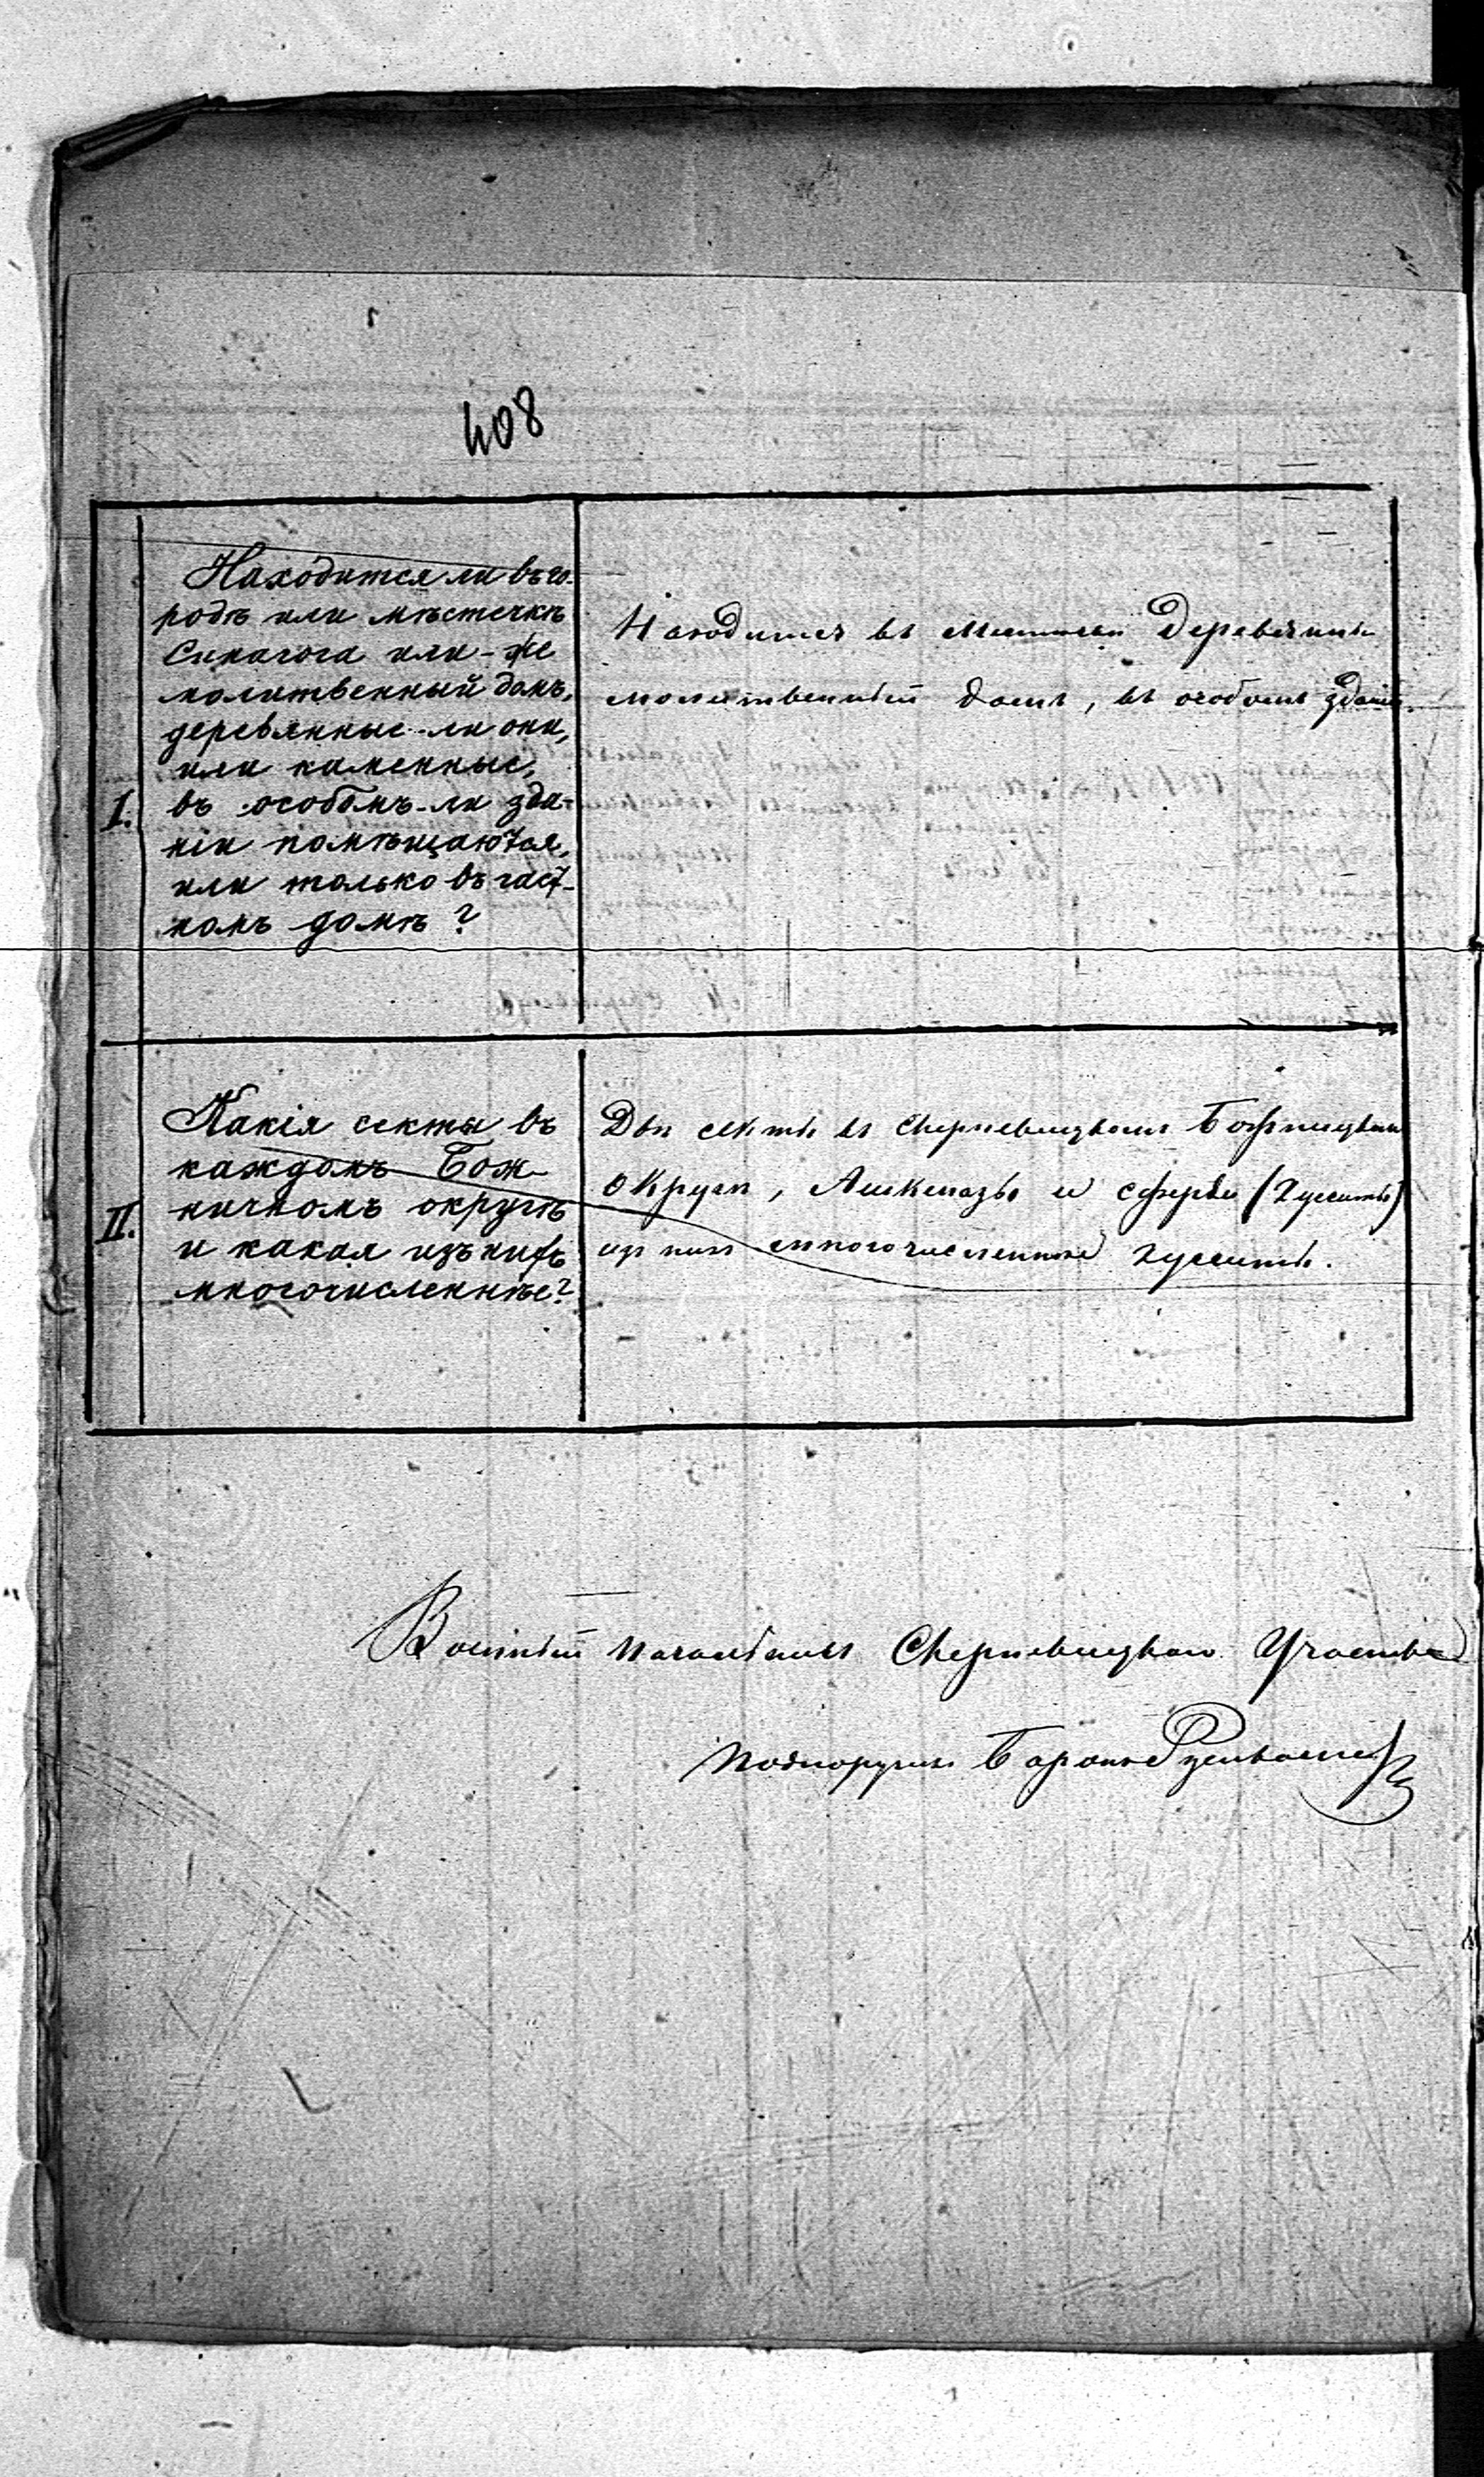 408
Находится ли въ го-
родѣ или мѣстечкѣ
Синагога или-же
молитвенный домъ,
деревянные-ли они,
или каменные,
I. въ особомъ-ли зда-
ніи помѣщаются,
или только въ част-
номъ домѣ?
Находится въ Деревянный
молитвенный домъ, въ особомъ зданіи.
Какія секты въ
каждомъ Бож-
II. ничномъ округѣ
и какая изъ нихъ
многочисленнѣе?
Двѣ секты въ Скерневицкомъ Божницкомъ
Округѣ, Ашкеназы и сферды (Хуситы)
изъ нихъ многочисленнѣе хуситы.
Военный Начальникъ Скерневицкаго Участка
Подпоручикъ Баронъ